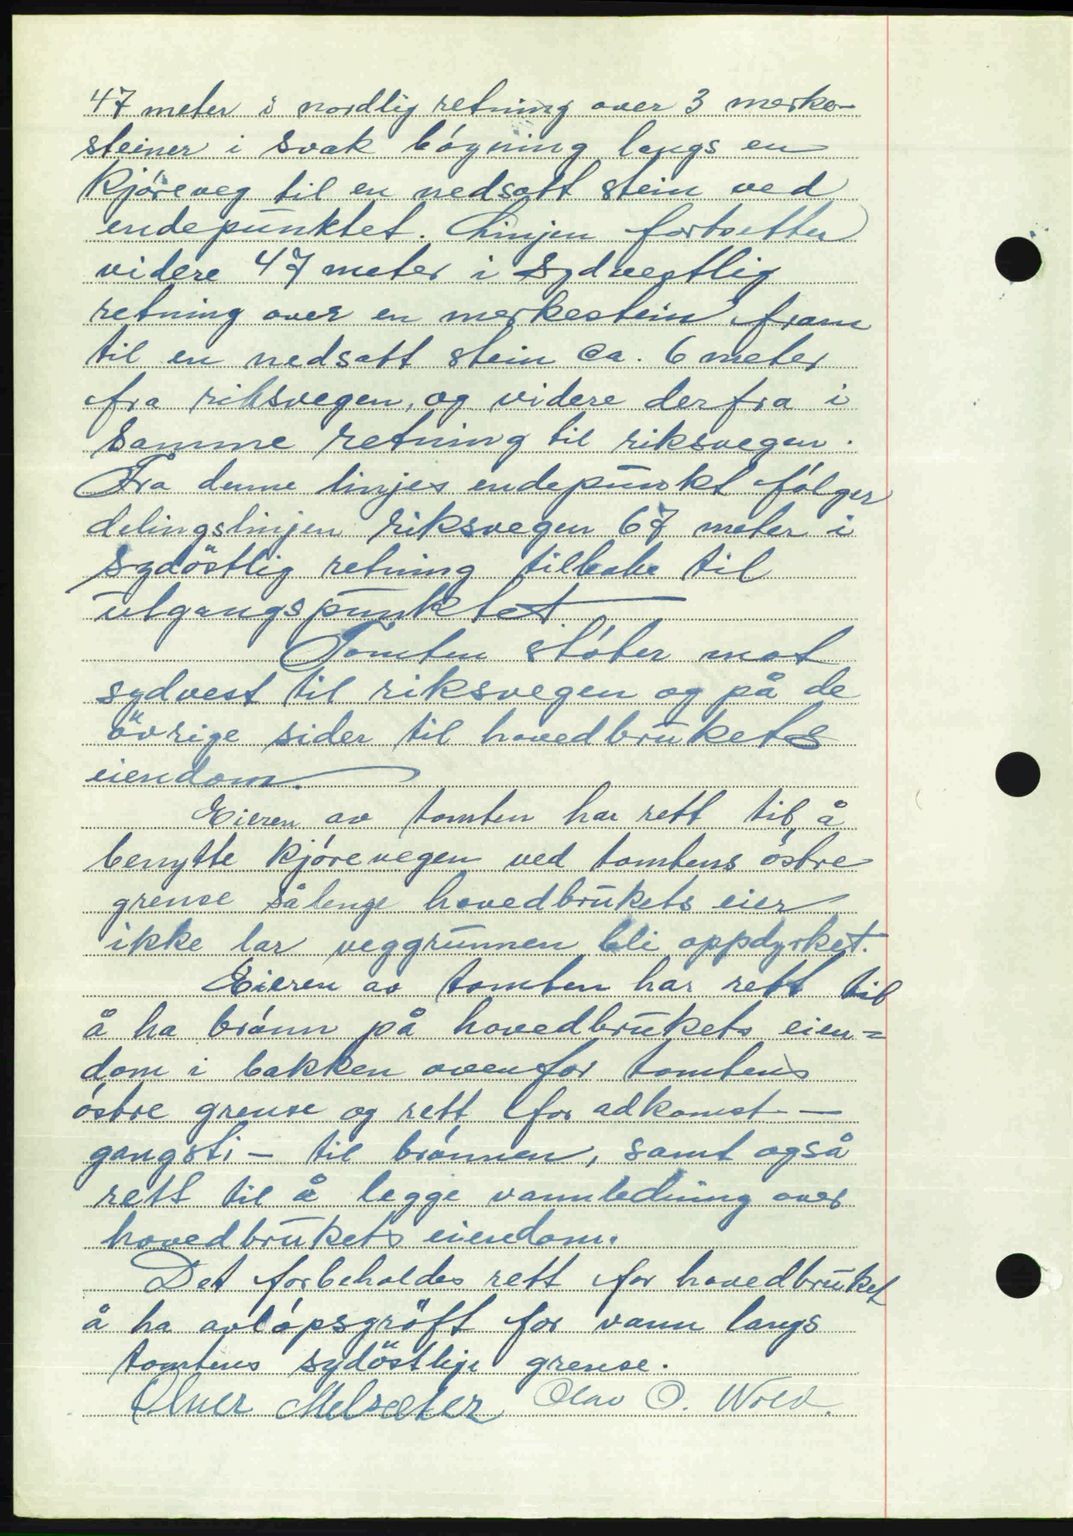 47 meter i nordlig retning over 3 merke-
steiner i svak bøyning langs en
kjøreveg til en nedsatt stein ved
endepunktet. Linjen fortsetter
videre 47 meter i sydvestlig
retning over en merkestein fram
til en nedsatt stein ca. 6 meter
fra riksvegen, og videre derfra i
samme retning til riksvegen.
Fra denne linjes endepunkt følger
delingslinjen riksvegen 67 meter i
sydöstlig retning tilbake til
utgangspunktet
Tomten støter mot
sydvest til riksvegen og på de
övrige sider til hovedbrukets
eiendom.
Eieren av tomten har rett til å
benytte kjørevegen ved tomtens østre
grense sålenge hovedbrukets eier
ikke lar veggrunnen bli oppdyrket.
Eieren av tomten har rett til
å ha brønn på hovedbrukets eien=
dom i bakken ovenfor tomtens
østre grense og rett for adkomst -
gangsti - til brønnen, samt også
rett til å legge vannledning over
hovedbrukets eiendom.
Det forbeholdes rett for hovedbruket
å ha avløpsgröft for vann langs
tomtens sydöstlige grense.
Melsæter Olav O. Wold.